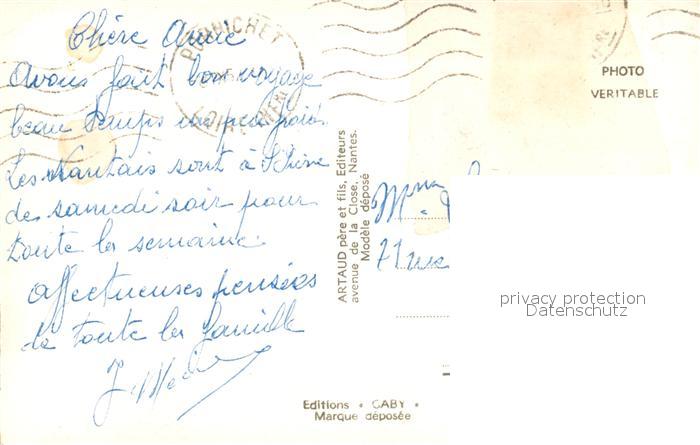 Chère Amie
Avons fait bon voyage
beau temps un peu frais
Les Nantais sont à
de samedi soir pour
toute la semaine.
Affectueuses pensées
de toute la famille
PORNICHET
PHOTO
VERITABLE
ARTAUD père et fils, Editeurs
avenue de la Close, Nantes.
Modèle déposé
Mme
71 rue
privacy protection
Datenschutz
Editions « GABY »
Marque déposée